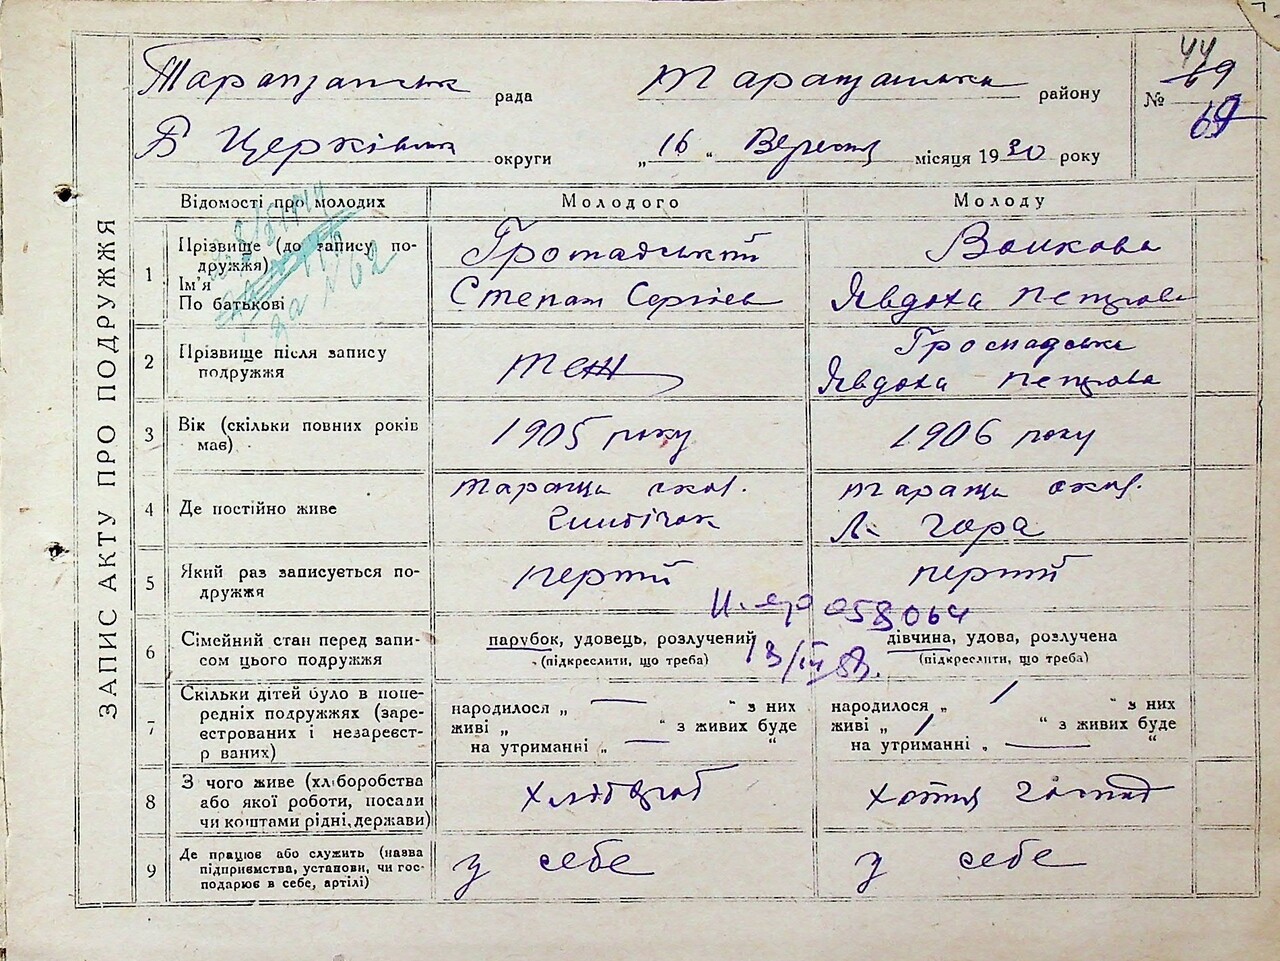 44
Таращанськ рада Таращанськ району № 69
69
Б Церківськ округи „16“ Вересня місяця 1930 року
ЗАПИС АКТУ ПРО ПОДРУЖЖЯ
Відомості про молодих Молодого Молоду
1 Прізвище (до запису подружжя) Громадський Волкова
Ім'я
По батькові Степан Сергієв Явдоха Петрова
2 Прізвище після запису подружжя теж Громадська
Явдоха Петрова
3 Вік (скільки повних років має) 1905 року 1906 року
4 Де постійно живе Тараща Тараща
Л. Гора
5 Який раз записується подружжя перший перший
058064
6 Сімейний стан перед записом цього подружжя парубок, удовець, розлучений дівчина, удова, розлучена
(підкреслити, що треба) (підкреслити, що треба)
7 Скільки дітей було в попередніх подружжях (зареєстрованих і незареєстр ваних) народилося „ — “ з них народилося „ / “ з них
живі „ “ з живих буде живі „ / “ з живих буде
на утриманні „ — “ на утриманні „ — “
8 З чого живе (хліборобства або якої роботи, посади чи коштами рідні, держави) хлібороб хатня господ
9 Де працює або служить (назва підприємства, установи, чи господарює в себе, артілі) у себе у себе